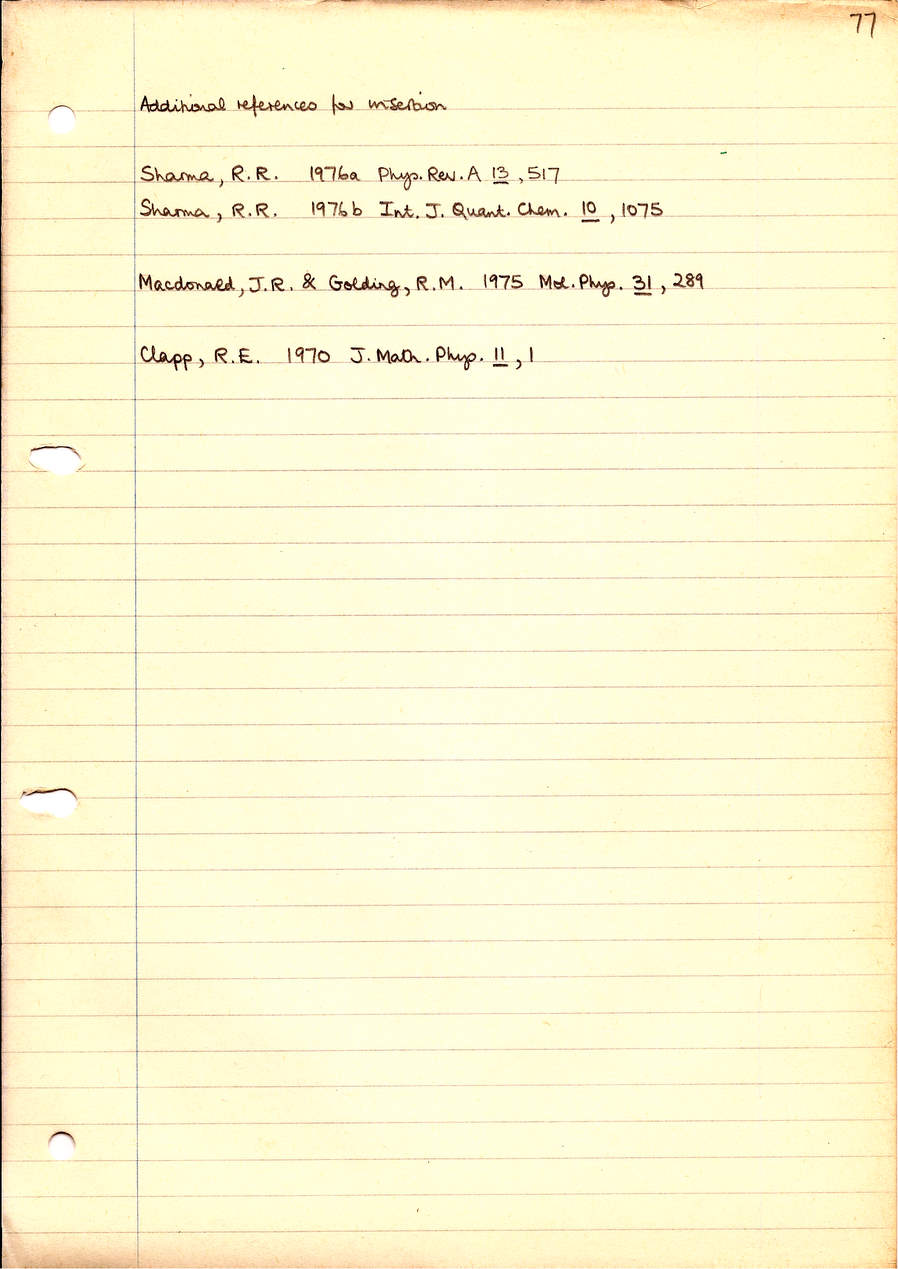 77
Additional references for insertion
Sharma, R.R. 1976a Phys. Rev. A 13, 517
Sharma, R.R. 1976b Int. J. Quant. Chem. 10, 1075
Macdonald, J.R. & Golding, R.M. 1975 Mol. Phys. 31, 289
Clapp, R.E. 1970 J. Math. Phys. 11, 1